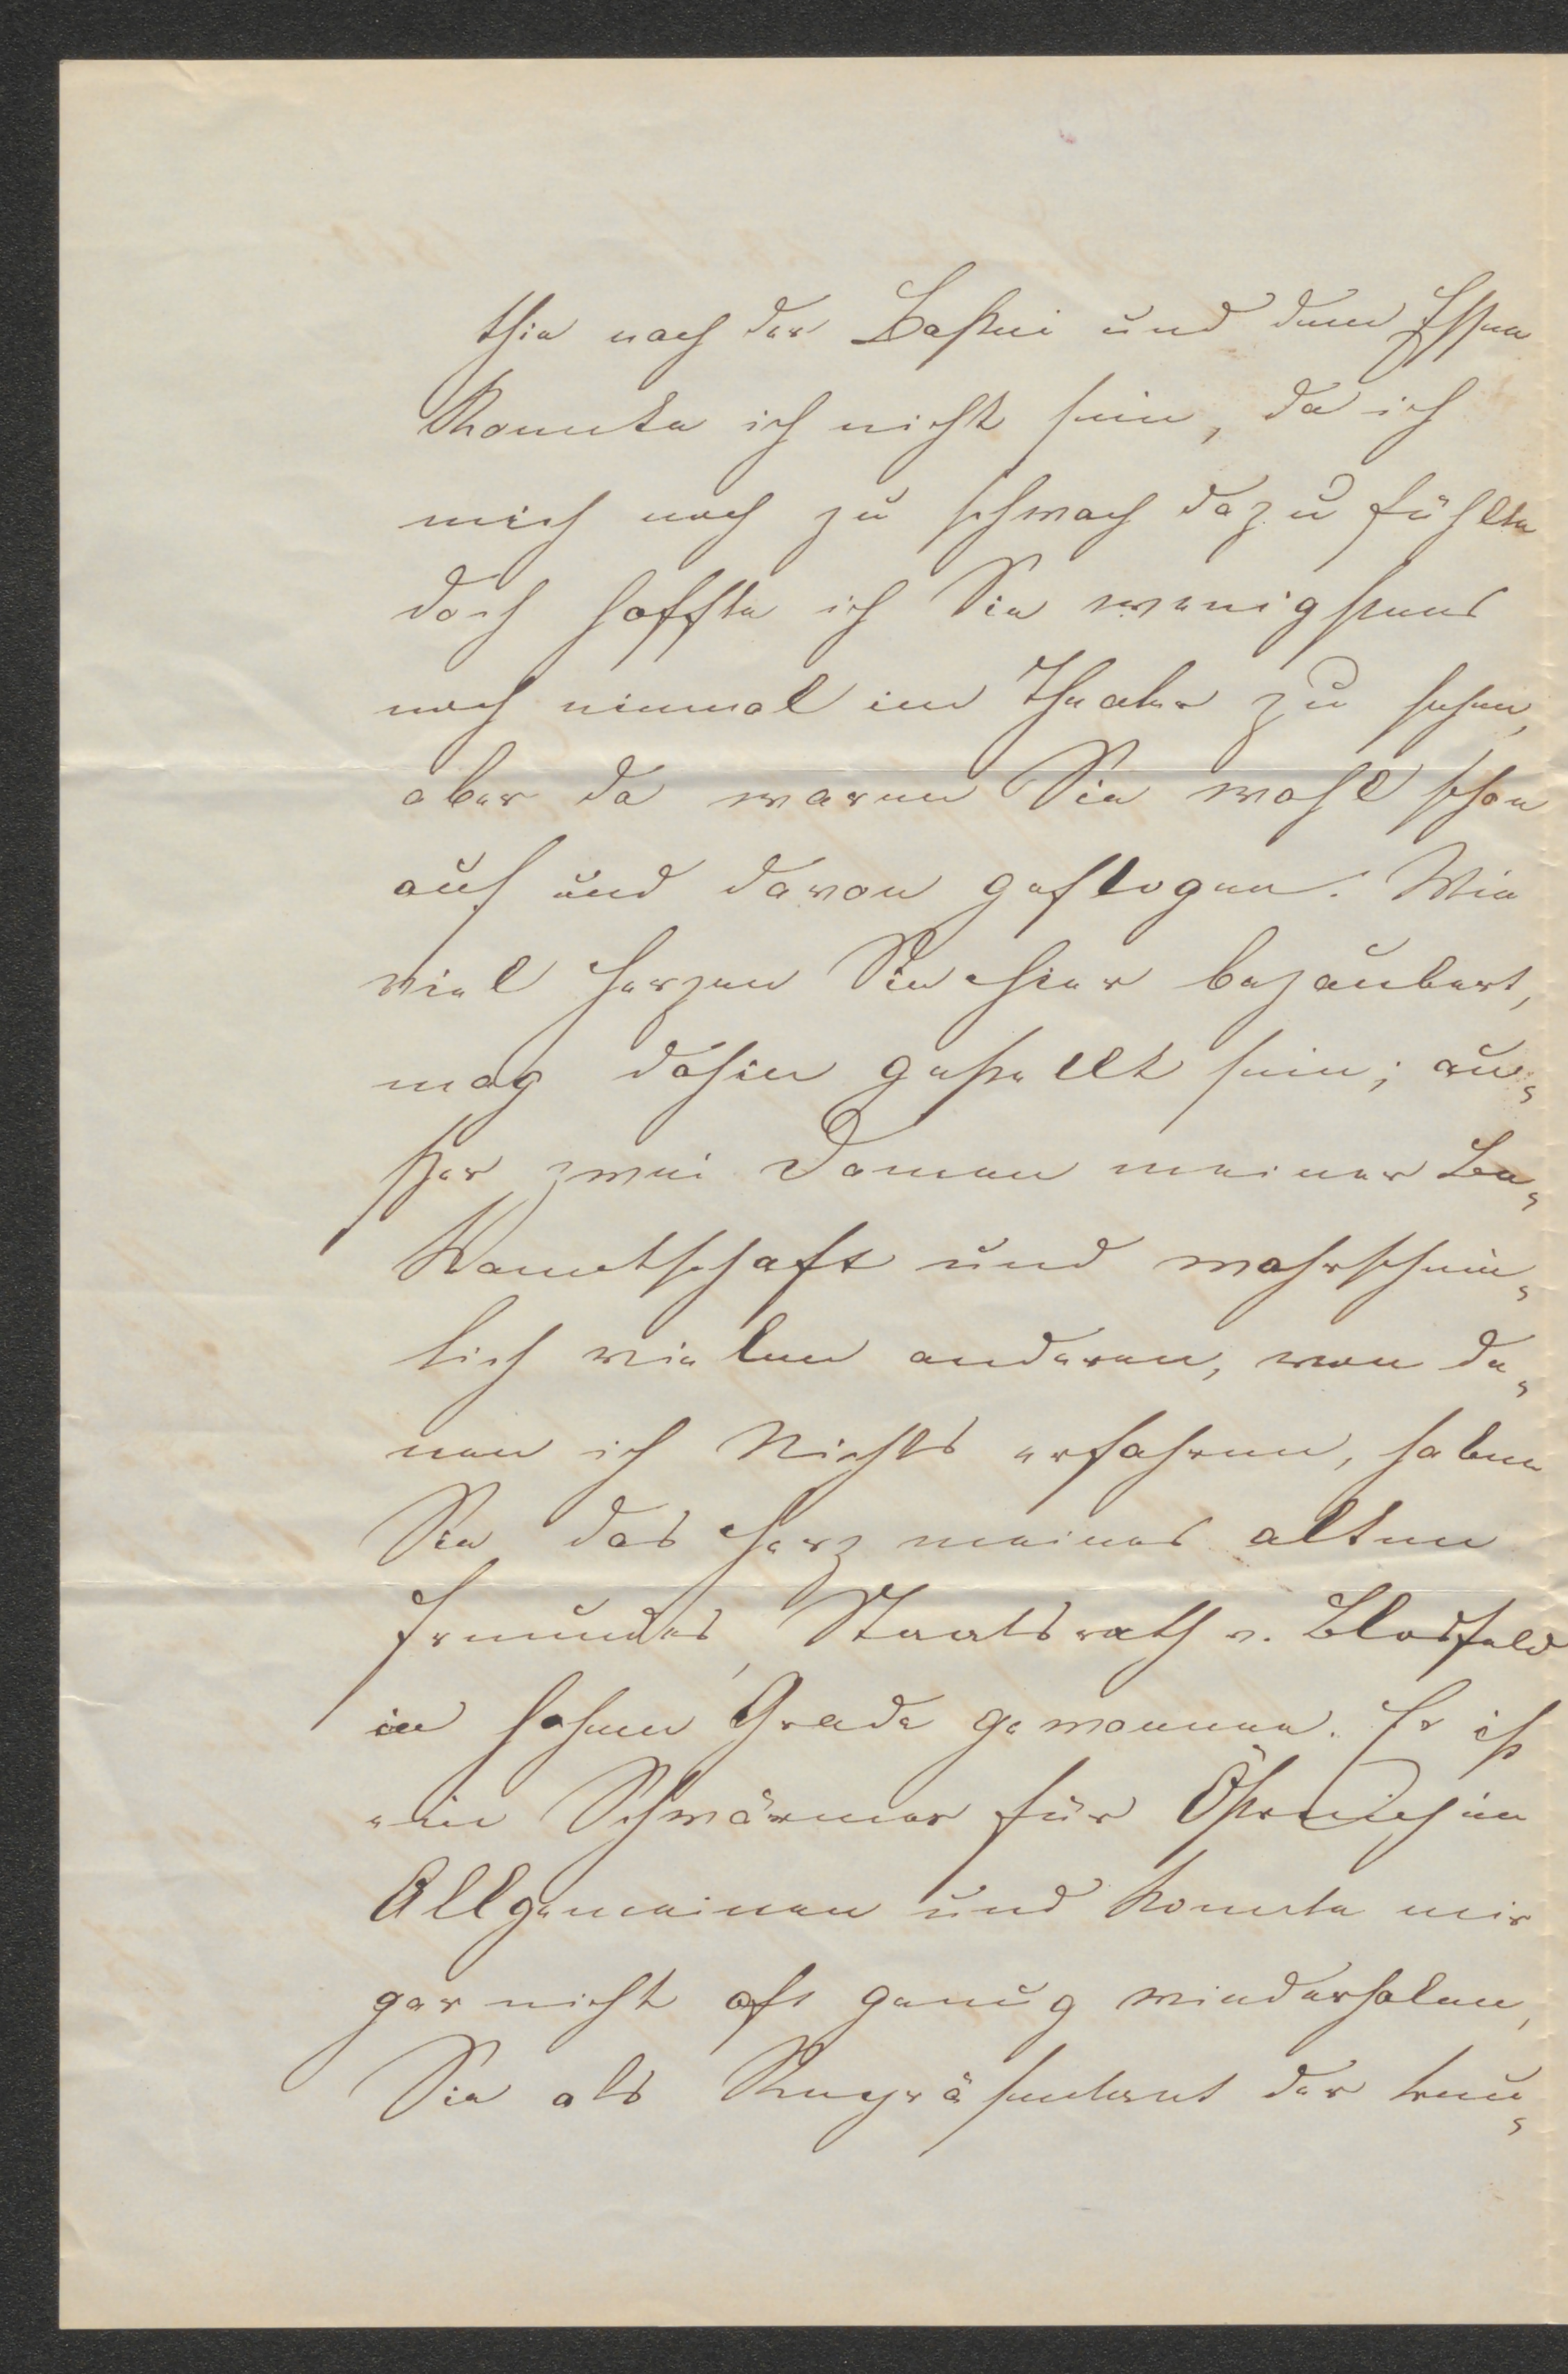 thie nach der Bastei und dem Essen
konnte ich nicht sein, da ich
mich noch zu schwach dazu fühlte
doch hoffte ich Sie wenigstens
noch einmal im Theater zu sehen,
aber da waren Sie wohl schon
auf und davon geflogen. Wie
viel Herzen Sie hier bezaubert,
mag dahin gestellt sein; au-
ßer zwei Damen meiner Be-
kanntschaft und wahrschein-
lich vielen anderen, von de-
nen ich Nichts erfahren, haben
Sie das Herz meines alten
Freundes, Staatsrath v. Blosfeld
in hohem Grade gewonnen. Er ist
ein Schwärmer für Östreich im
Allgemeinen und konnte mir
gar nicht oft genug wiederholen,
Sie als Repräsentant der treu-